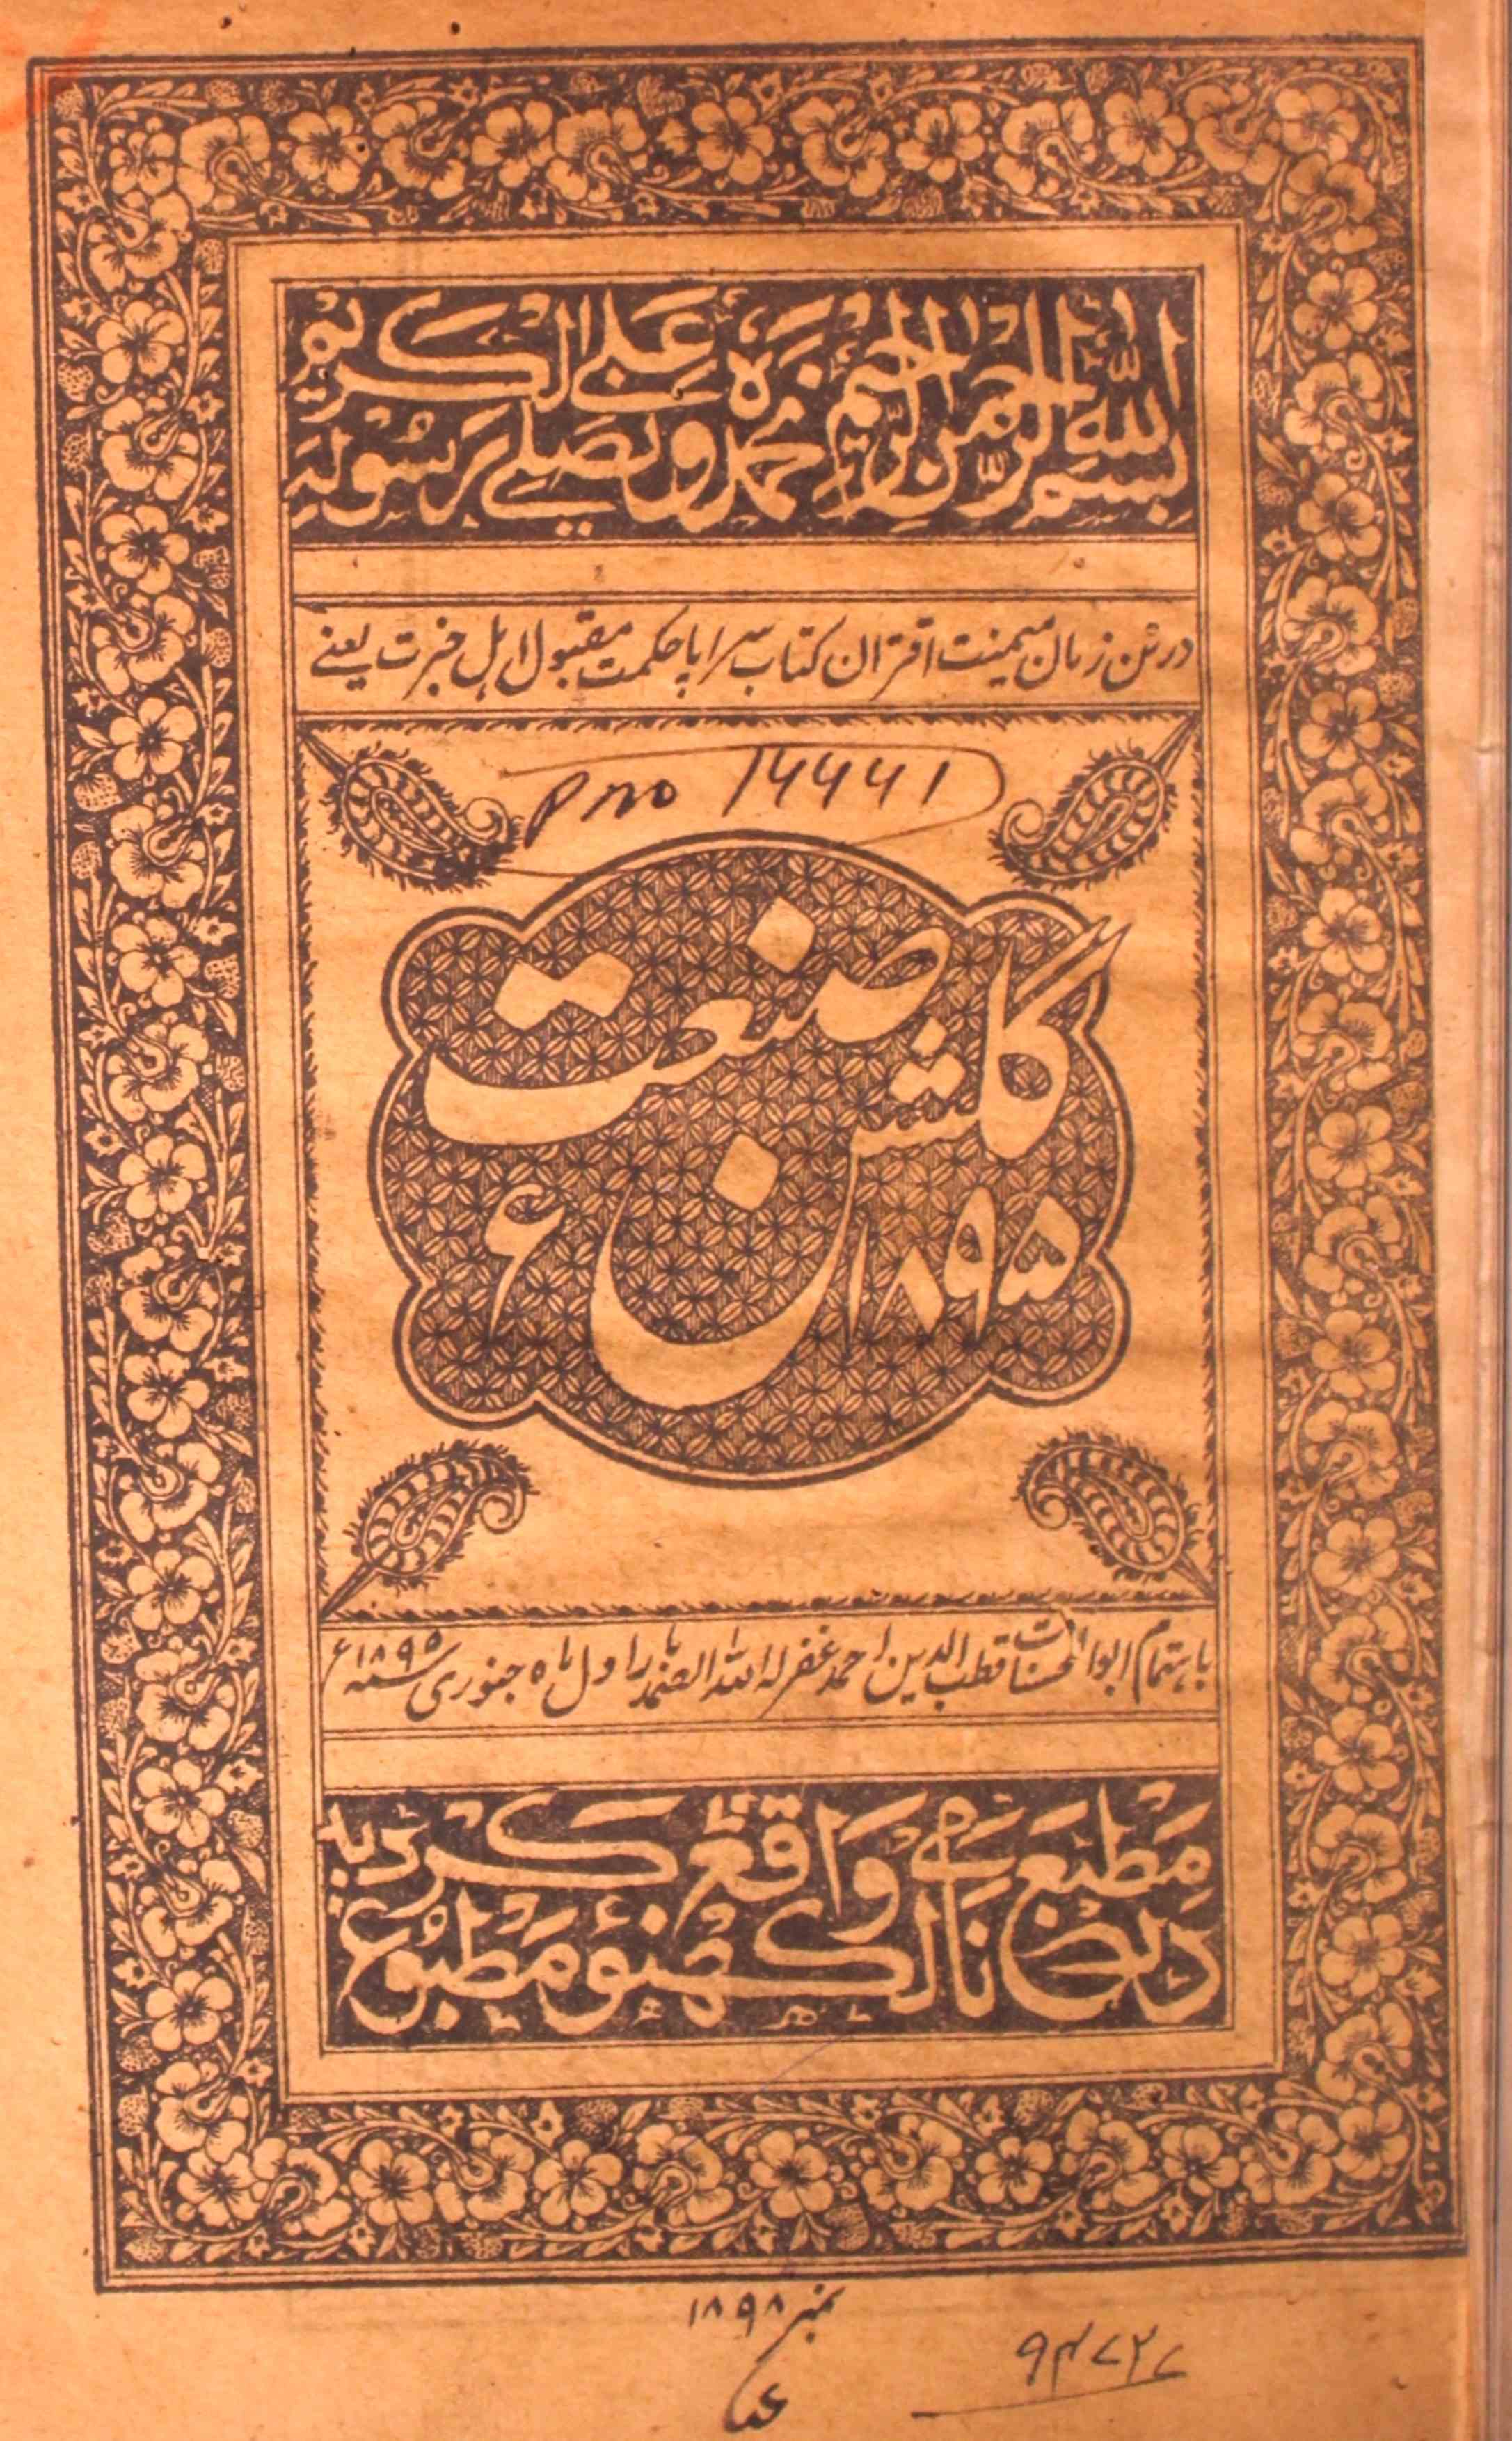 بسم الله الرحمن الرحیم نحمده ونصلے علی رسوله الکریم
درین زمان میمنت اقتران کتاب سراپا حکمت مقبول اہل خبرت یعنے
P no 16661
گلشن صنعت
۱۸۹۵ء
باہتمام ابوالحسنات قطب الدین احمد غفر لہ اللہ الصمد بار اول ماہ جنوری سنہ ۱۸۹۵ء
مطبع نامی واقع کٹرہ
لکھنؤ مطبوع گردید
نمبر ۱۸۹۸
۹۴۷۲۷